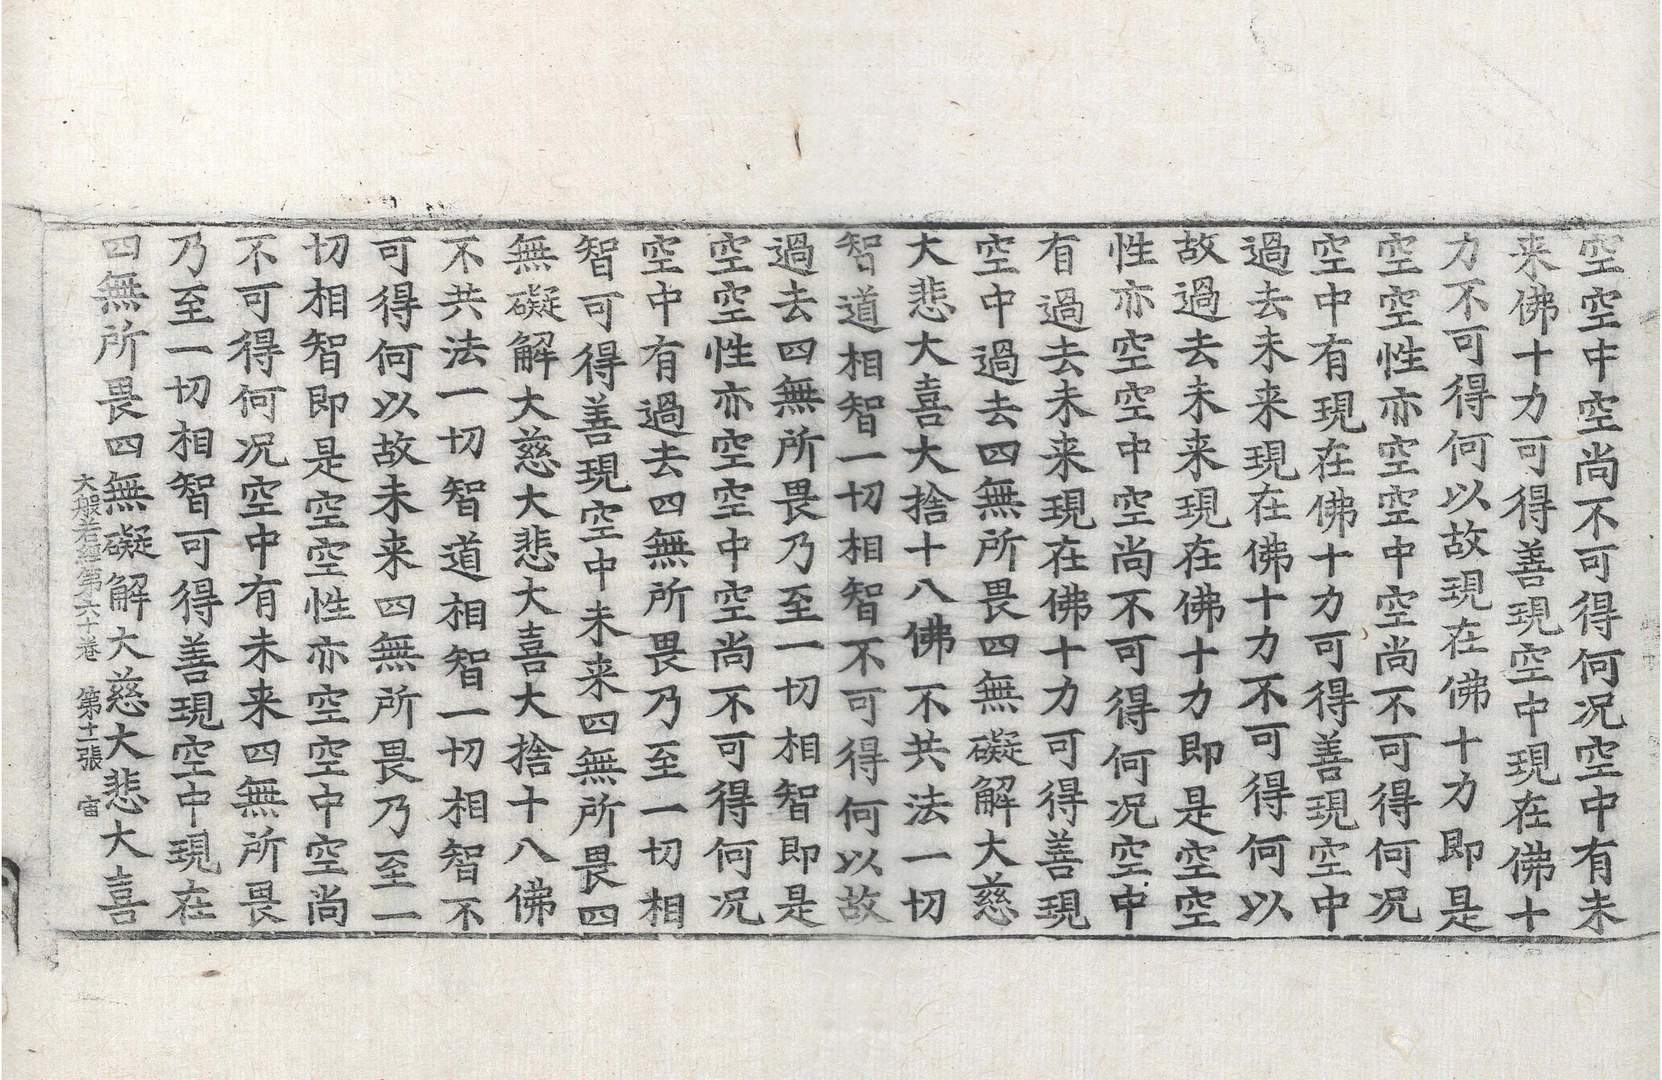 空空中空尚不可得何况空中有未
来佛十力可得善現空中現在佛十
力不可得何以故現在佛十力即是
空空性亦空空中空尚不可得何况
空中有現在佛十力可得善現空中
過去未来現在佛十力不可得何以
故過去未来現在佛十力即是空空
性亦空空中空尚不可得何况空中
有過去未来現在佛十力可得善現
空中過去四無所畏四無礙解大慈
大悲大喜大捨十八佛不共法一切
智道相智一切相智不可得何以故
過去四無所畏乃至一切相智即是
空空性亦空空中空尚不可得何况
空中有過去四無所畏乃至一切相
智可得善現空中未来四無所畏四
無礙解大慈大悲大喜大捨十八佛
不共法一切智道相智一切相智不
可得何以故未来四無所畏乃至一
切相智即是空空性亦空空中空尚
不可得何况空中有未来四無所畏
乃至一切相智可得善現空中現在
四無所畏四無礙解大慈大悲大喜
大般若經第六十卷 第十張 宙